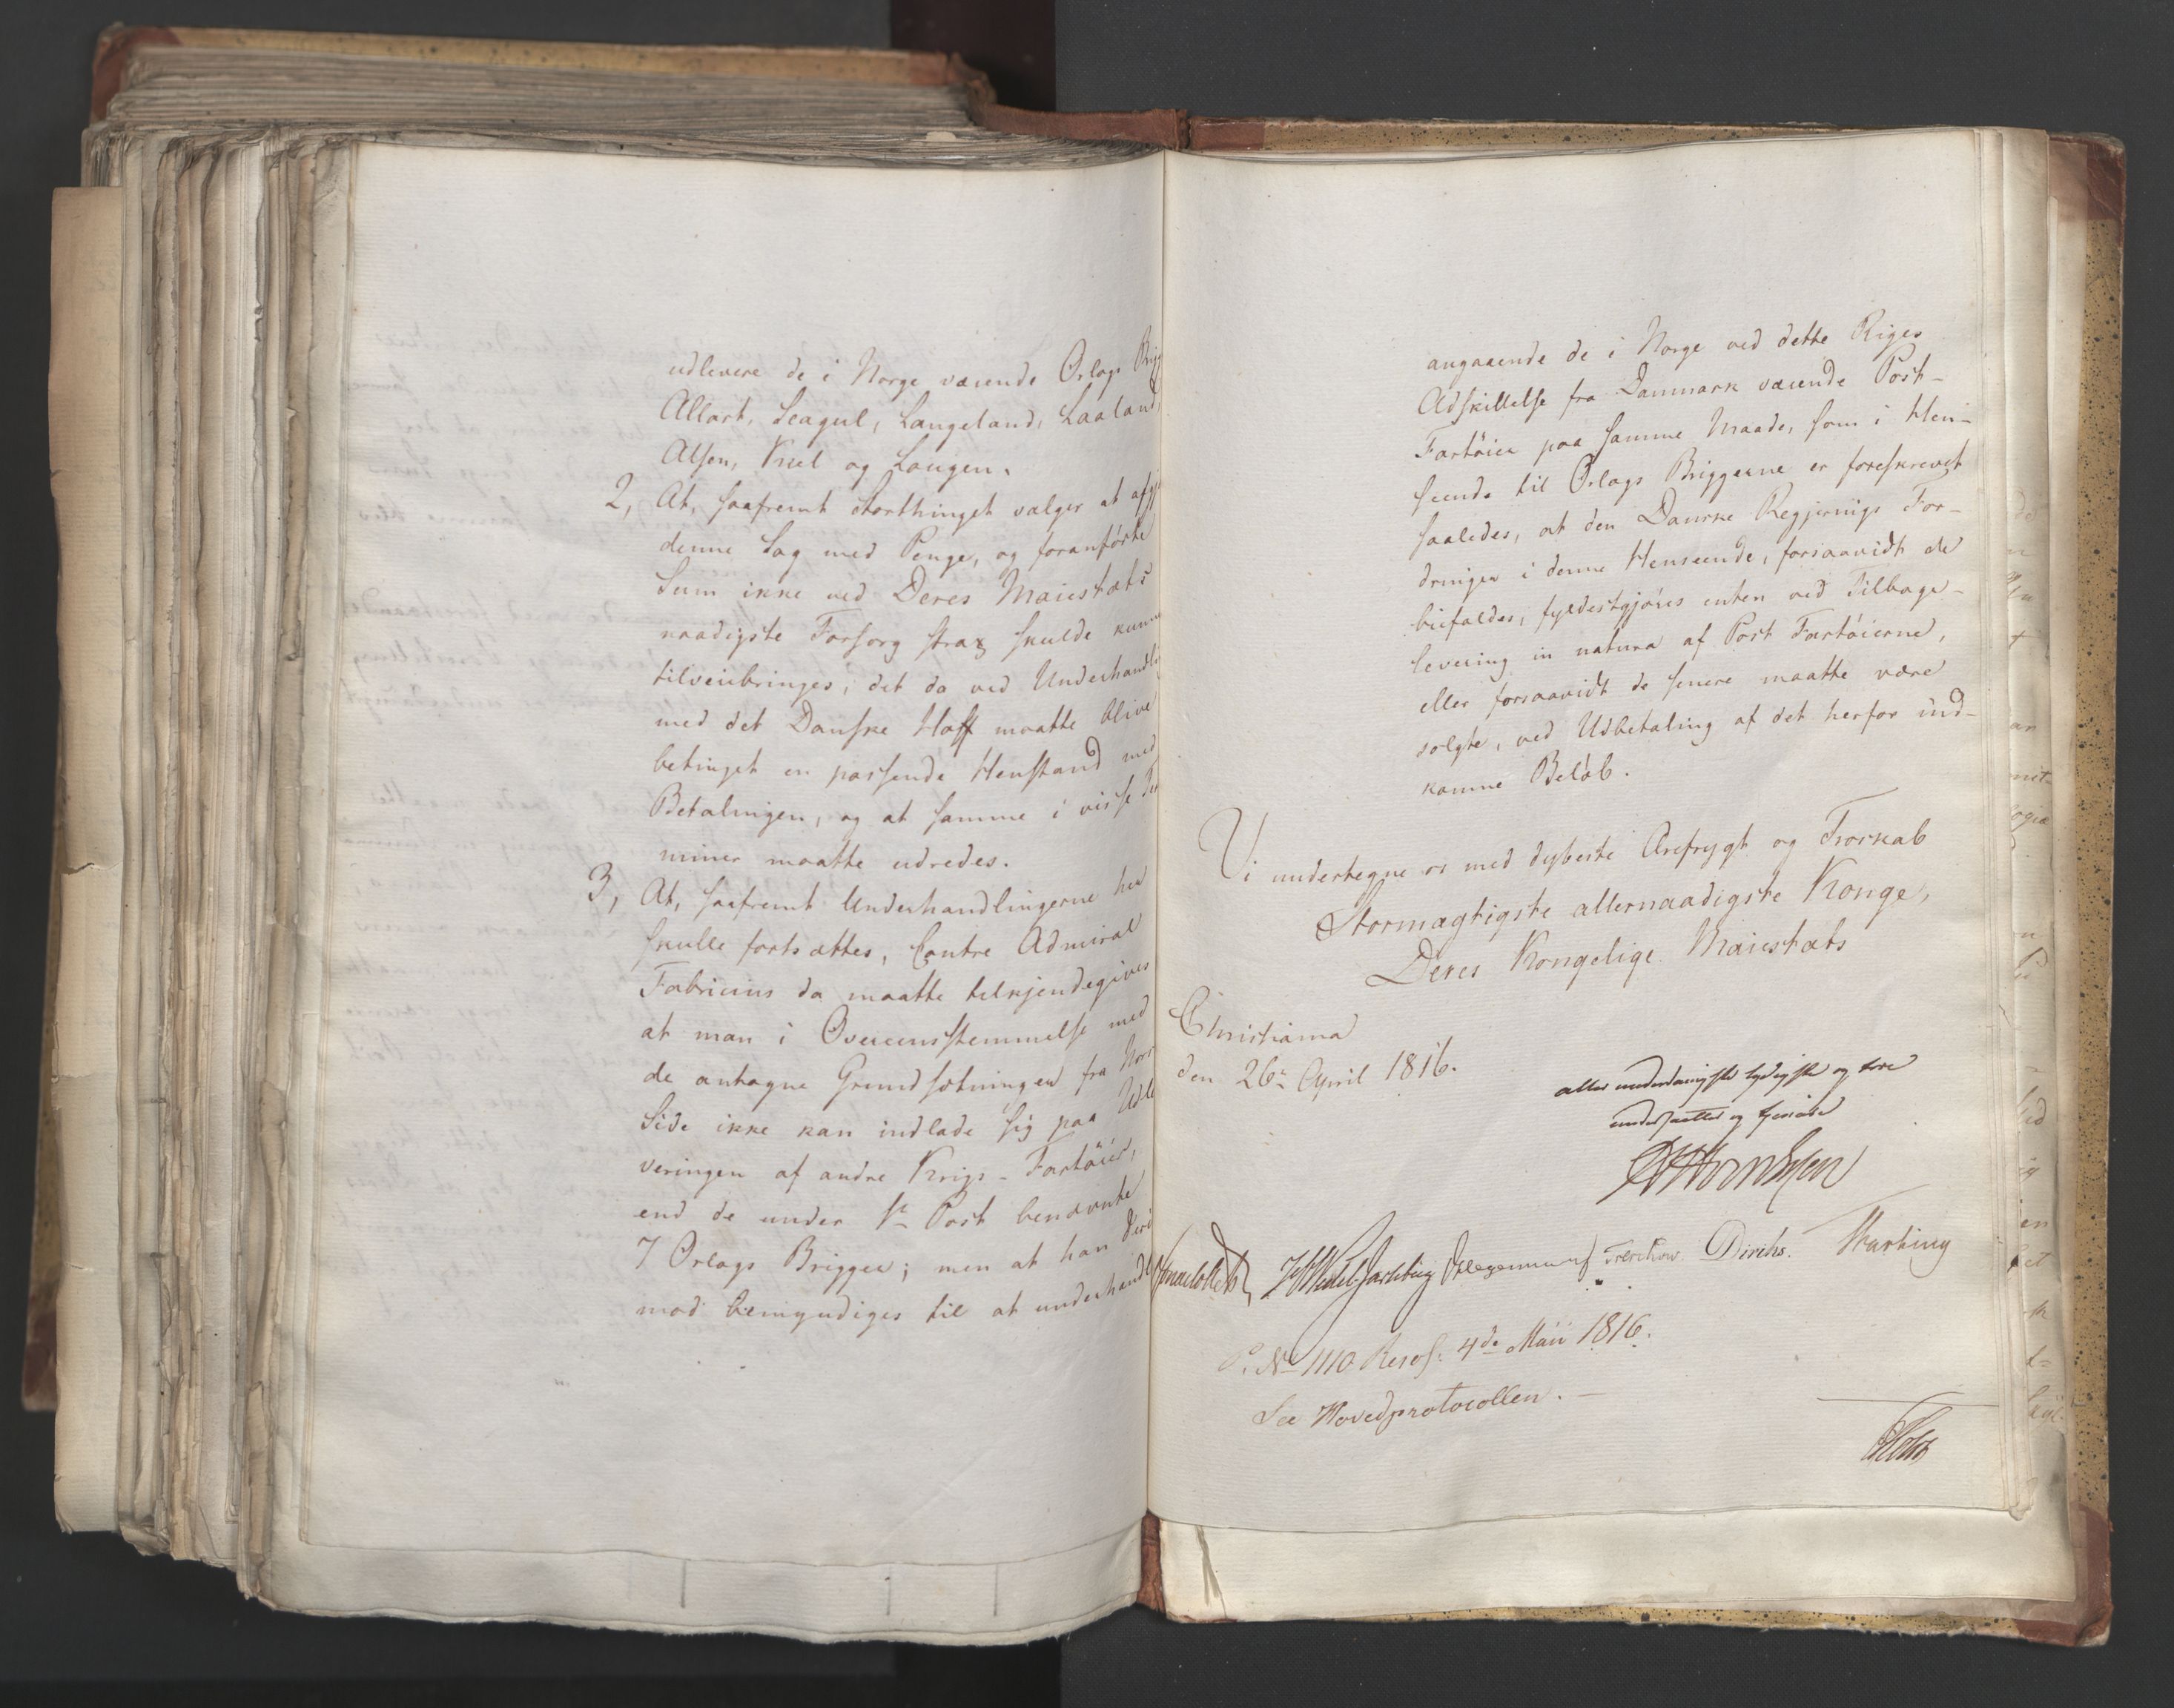 udlevere de i Norge værende Orlogs Brig
Allart, Seagul, Langeland, Laaland,
Alsen, Kiel og Lougen.
2, At, saafremt Storthinget vælger at afgj
denne Sag med Penge, og foranførte
Sum ikke ved Deres Maiestæts
naadigste Forsorg strax skulde kunne
tilveiebringes, det da ved Underhandli
med det Danske Hoff maatte blive
betinget en passende Henstand med
Betalingen, og at samme i visse Ter
miner maatte udredes.
3, At, saafremt Underhandlingerne her
skulle fortsættes, Contre Admiral
Fabricius da maatte tilkjendegives
at man i Overeensstemmelse med
de antagne Grundsætninger fra Norsk
Side ikke kan indlade sig paa Udle
veringen af andre Krigs-Fartøier,
end de under 1e Post benævnte
7 Orlogs Brigger; men at han deri
mod bemyndiges til at underhandle
angaaende de i Norge ved dette Riges
Adskillelse fra Danmark værende Post-
Fartøier paa samme Maade, som i Hen-
seende til Orlogs Briggerne er foreskrevet
saaledes, at den Danske Regjerings For-
dringer i denne Henseende, forsaavidt de
biefaldes, fyldestgjøres enten ved Tilbage-
levering in natura af Post Fartøierne,
eller forsaavidt de senere maatte være
solgte, ved Udbetaling af det herfor ind-
komne Beløb.
Vi undertegne os med dybeste Ærefrygt og Troskab
Stormægtigste allernaadigste Konge,
Deres Kongelige Maiestæts
Christiania
den 26e April 1816.
allerunderdanigste lydigste og troe
undersaatter og tienere
Wedel Jarlsberg Treschow Diriks. Motzfeldt
P. No 1110. Resol: 4de Maii 1816.
See Hovedprotocollen. —
Holst